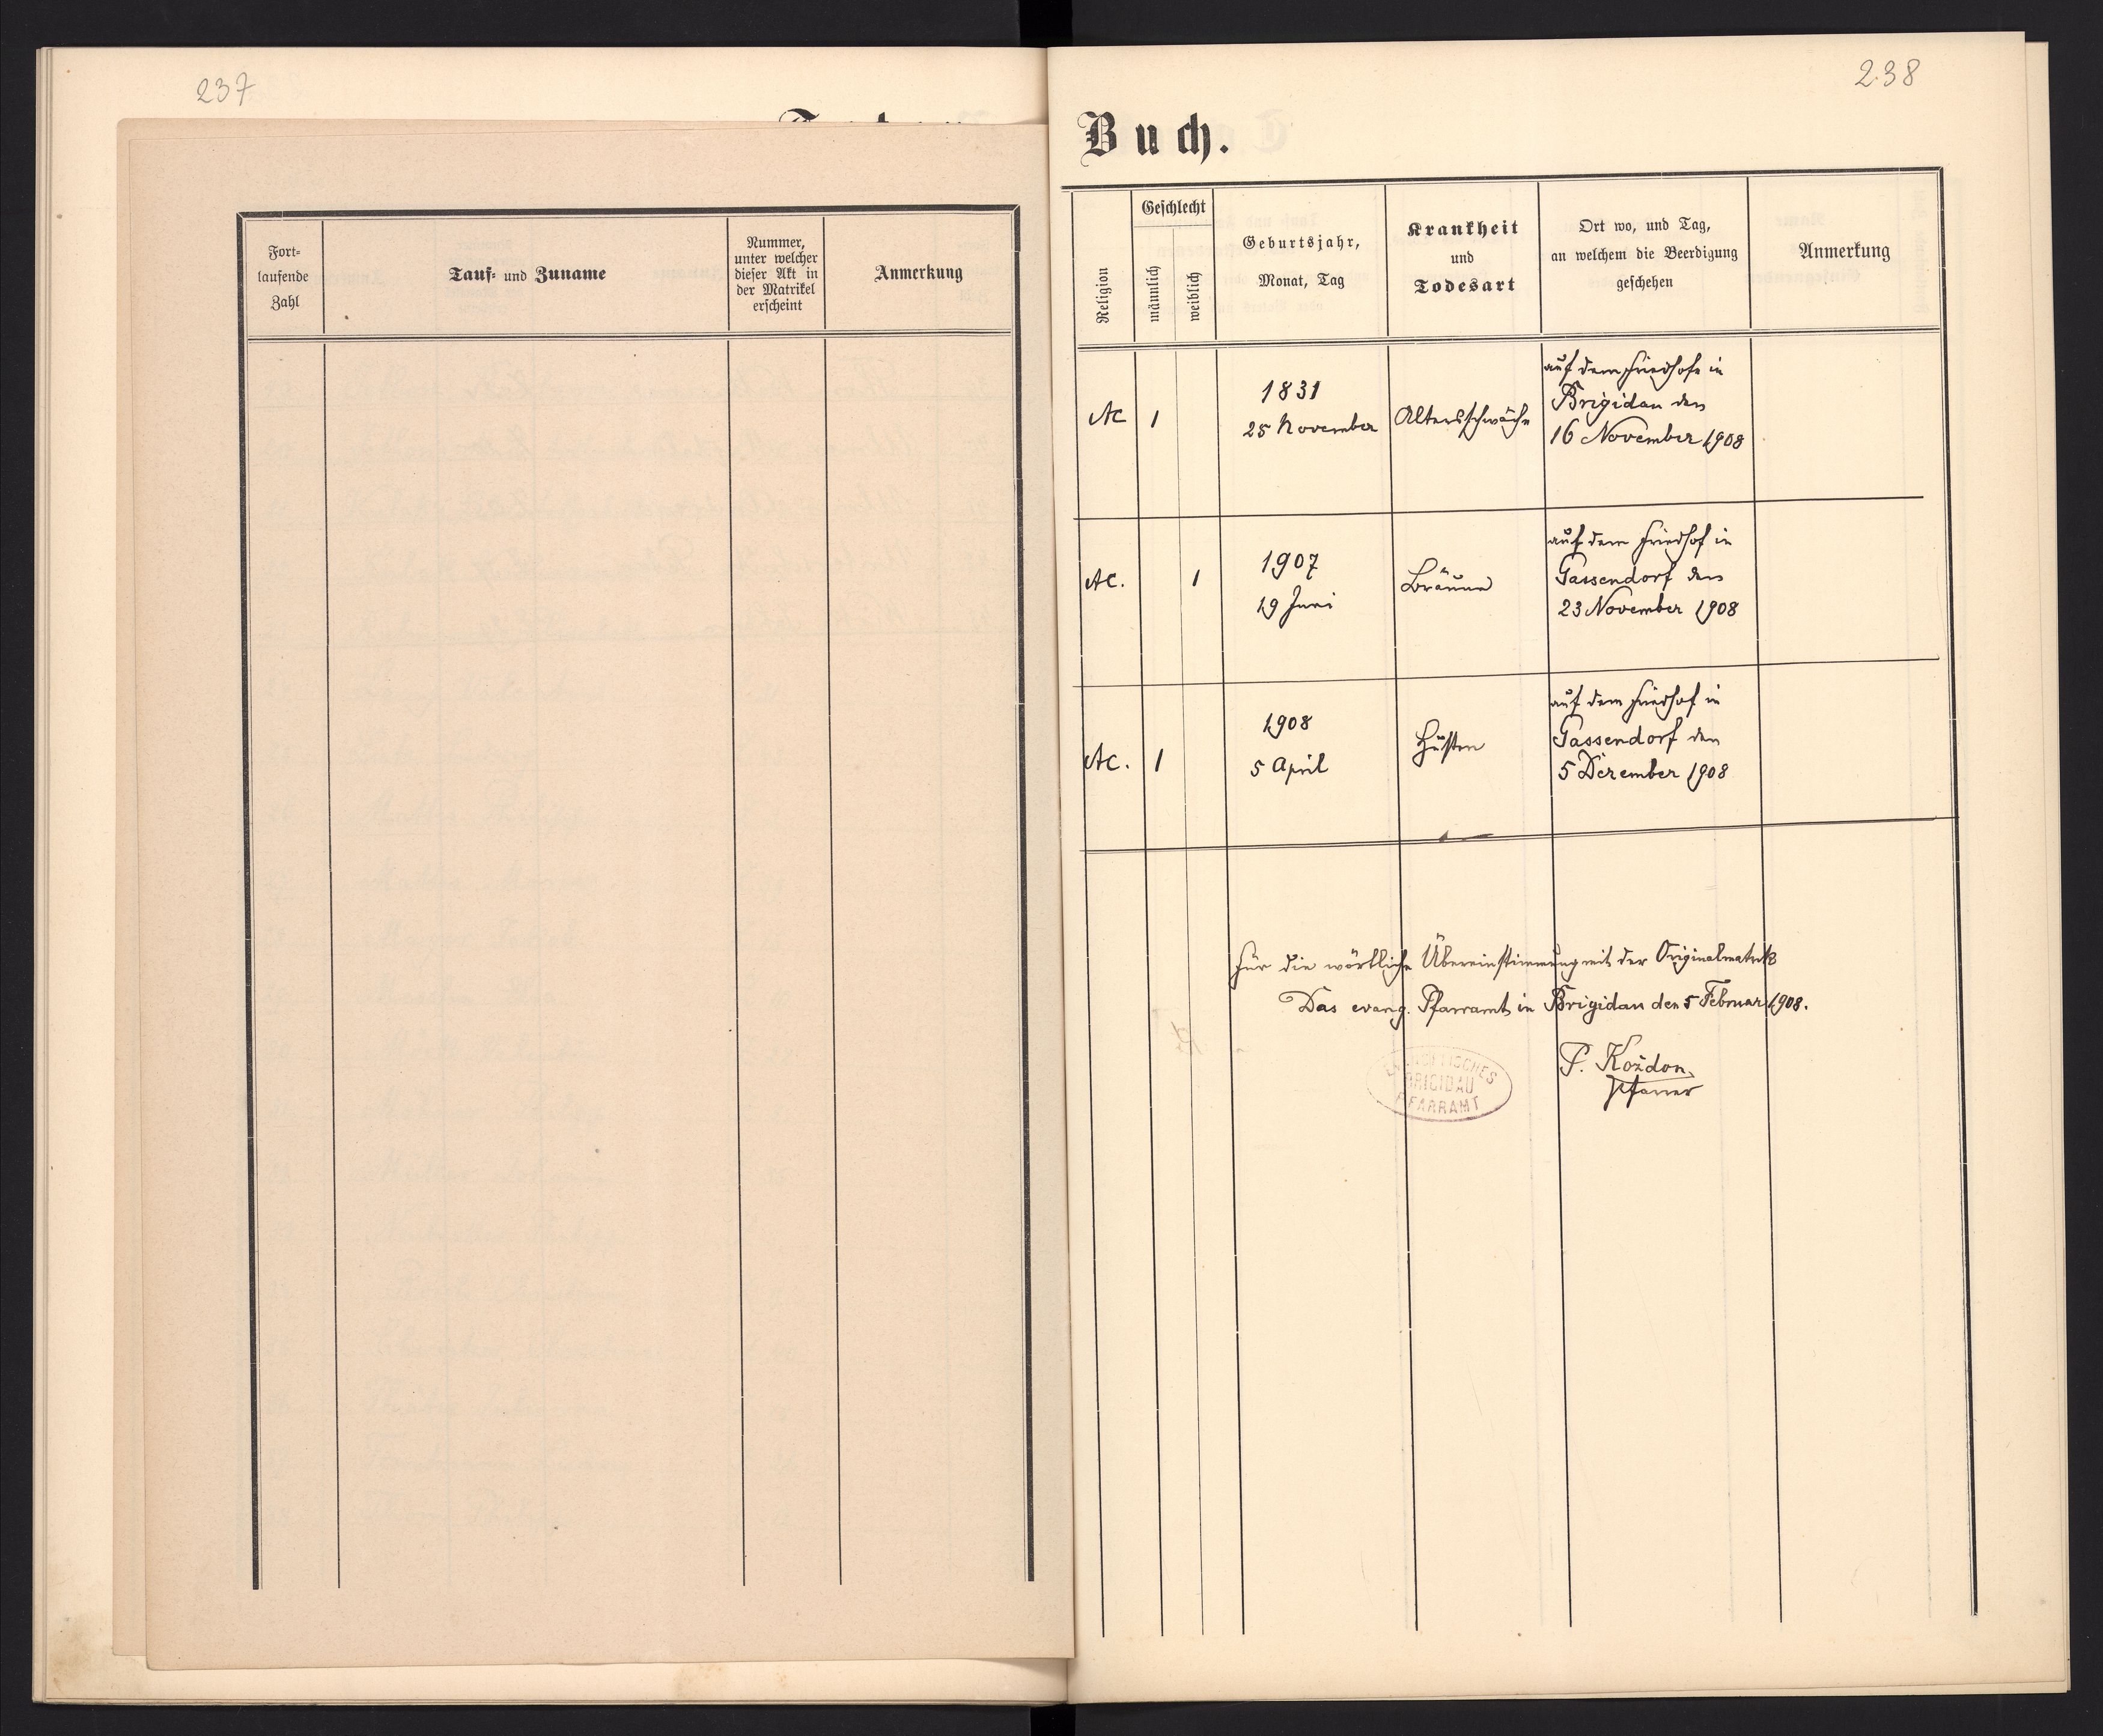 237
Fort-
laufende
Zahl
Tauf- und Zuname
Nummer,
unter welcher
dieser Akt in
der Matrikel
erscheint
Anmerkung
238
Buch.
Religion
Geschlecht
männlich
weiblich
Geburtsjahr,
Monat, Tag
Krankheit
und
Todesart
Ort wo, und Tag,
an welchem die Beerdigung
geschehen
Anmerkung
AC
1
1831
25 November
Altersschwäche
auf dem Friedhofe in
Brigidau den
16 November 1908
AC.
1
1907
19 Juni
Bräune
auf dem Friedhof in
Gassendorf den
23 November 1908
AC.
1
1908
5 April
Husten
auf dem Friedhof in
Gassendorf den
5 Dezember 1908
Für die wörtliche Übereinstimmung mit der Originalmatrik
Das evang. Pfarramt in Brigidau den 5 Februar 1908.
BRIGIDAU
PFARRAMT
P. Koždon,
Pfarrer